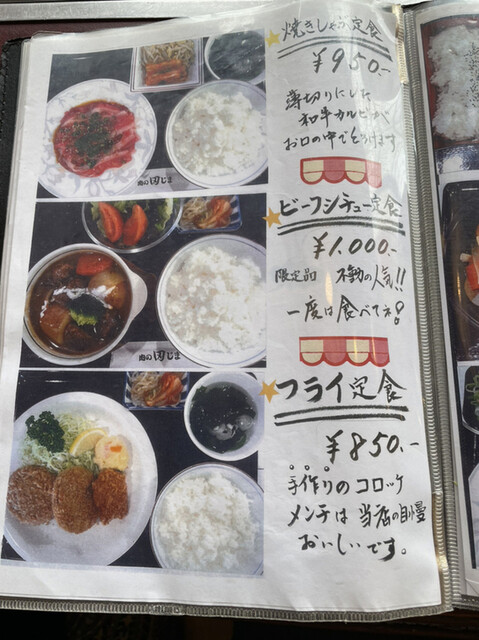 焼きしゃぶ定食
¥950.-
薄切りにした
和牛カルビが
お口の中でとろけます
ビーフシチュー定食
¥1,000.-
限定品 不動の人気!!
一度は食べてネ!
フライ定食
¥850.-
手作りのコロッケ
メンチは当店の自慢
おいしいです。
肉の田じま
肉の田じま